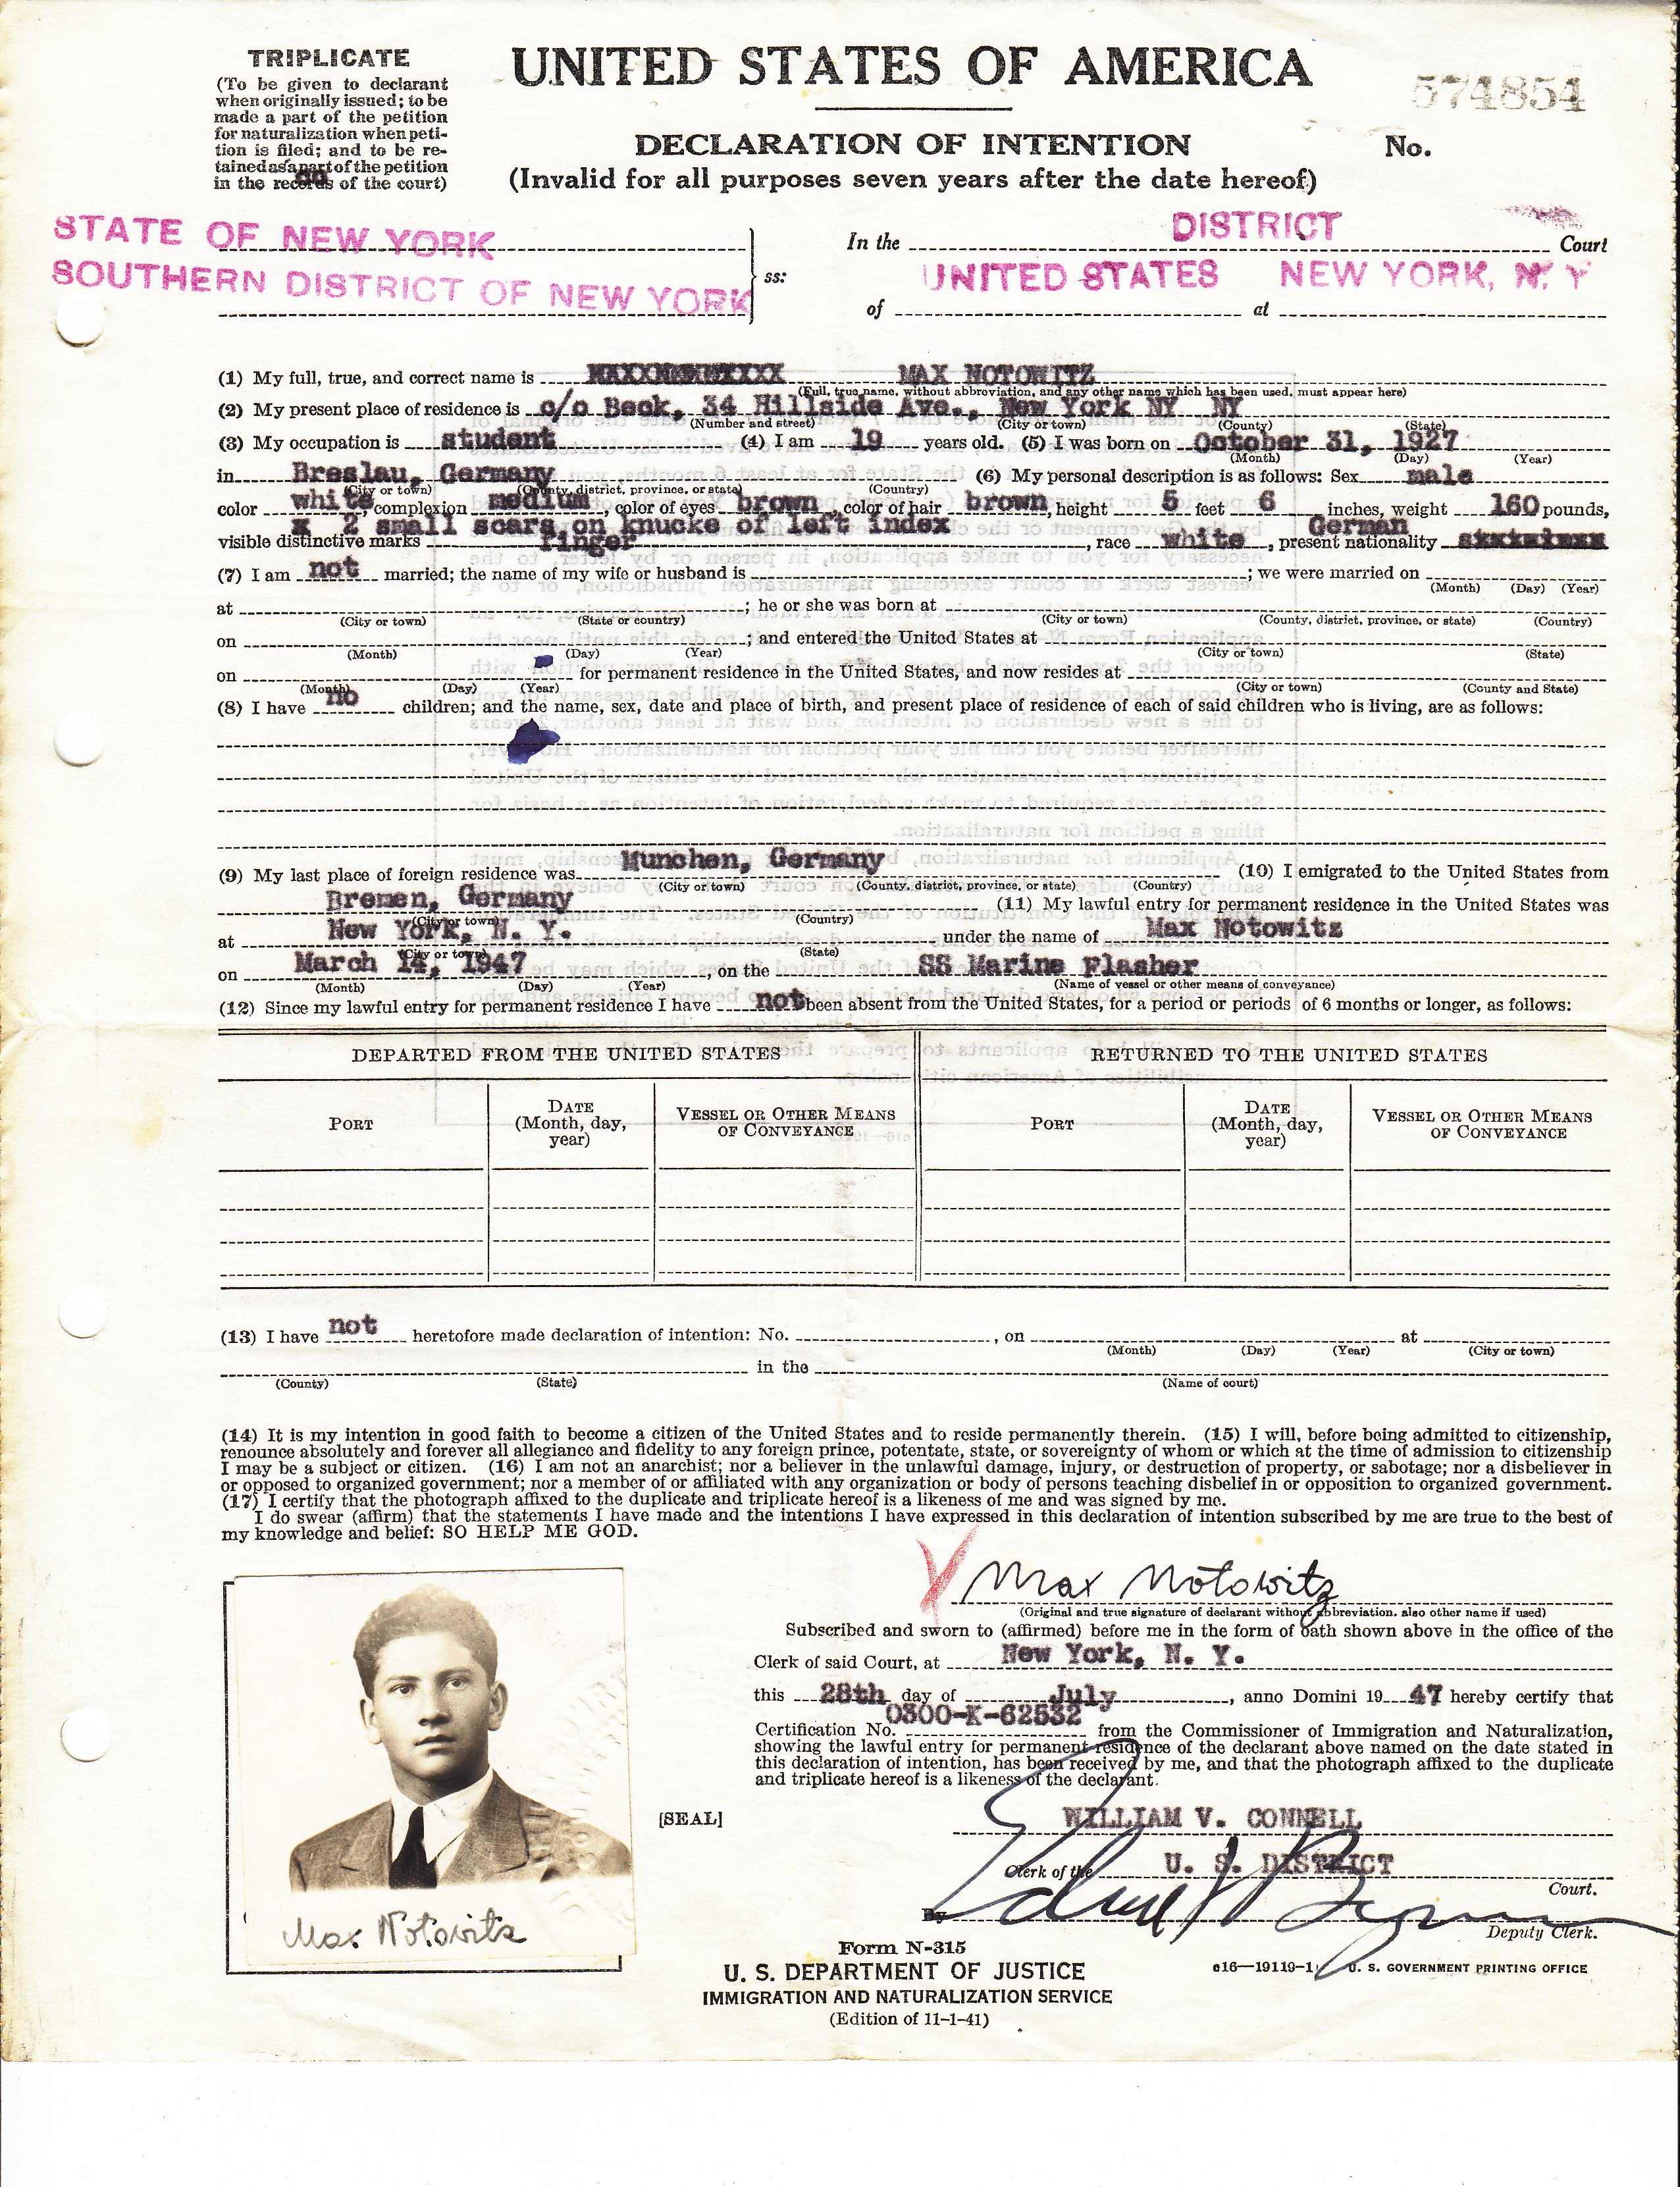 TRIPLICATE
(To be given to declarant
when originally issued; to be
made a part of the petition
for naturalization when peti-
tion is filed; and to be re-
tained as a part of the petition
in the records of the court)
UNITED STATES OF AMERICA
574854
DECLARATION OF INTENTION
No.
(Invalid for all purposes seven years after the date hereof)
STATE OF NEW YORK
SOUTHERN DISTRICT OF NEW YORK
ss:
In the DISTRICT Court
UNITED STATES NEW YORK, N. Y
of at
(1) My full, true, and correct name is MAX NOTOWITZ
(Full, true name, without abbreviation, and any other name which has been used, must appear here)
(2) My present place of residence is c/o Beck, 34 Hillside Ave., New York NY NY
(Number and street) (City or town) (County) (State)
(3) My occupation is student (4) I am 19 years old. (5) I was born on October 31, 1927
(Month) (Day) (Year)
in Breslau, Germany (6) My personal description is as follows: Sex male
(City or town) (County, district, province, or state) (Country)
color white, complexion medium, color of eyes brown, color of hair brown, height 5 feet 6 inches, weight 160 pounds,
x 2 small scars on knucke of left index German
visible distinctive marks finger, race white, present nationality
(7) I am not married; the name of my wife or husband is ; we were married on
(Month) (Day) (Year)
at ; he or she was born at
(City or town) (State or country) (City or town) (County, district, province, or state) (Country)
on ; and entered the United States at
(Month) (Day) (Year) (City or town) (State)
on for permanent residence in the United States, and now resides at
(Month) (Day) (Year) (City or town) (County and State)
(8) I have no children; and the name, sex, date and place of birth, and present place of residence of each of said children who is living, are as follows:
(9) My last place of foreign residence was Munchen, Germany (10) I emigrated to the United States from
(City or town) (County, district, province, or state) (Country)
Bremen, Germany (11) My lawful entry for permanent residence in the United States was
(City or town) (Country)
at New York, N. Y. under the name of Max Notowitz
(City or town) (State)
on March 14, 1947, on the SS Marine Flasher
(Month) (Day) (Year) (Name of vessel or other means of conveyance)
(12) Since my lawful entry for permanent residence I have not been absent from the United States, for a period or periods of 6 months or longer, as follows:
DEPARTED FROM THE UNITED STATES RETURNED TO THE UNITED STATES
PORT DATE (Month, day, year) VESSEL OR OTHER MEANS OF CONVEYANCE PORT DATE (Month, day, year) VESSEL OR OTHER MEANS OF CONVEYANCE
(13) I have not heretofore made declaration of intention: No. , on at
(Month) (Day) (Year) (City or town)
in the
(County) (State) (Name of court)
(14) It is my intention in good faith to become a citizen of the United States and to reside permanently therein. (15) I will, before being admitted to citizenship,
renounce absolutely and forever all allegiance and fidelity to any foreign prince, potentate, state, or sovereignty of whom or which at the time of admission to citizenship
I may be a subject or citizen. (16) I am not an anarchist; nor a believer in the unlawful damage, injury, or destruction of property, or sabotage; nor a disbeliever in
or opposed to organized government; nor a member of or affiliated with any organization or body of persons teaching disbelief in or opposition to organized government.
(17) I certify that the photograph affixed to the duplicate and triplicate hereof is a likeness of me and was signed by me.
I do swear (affirm) that the statements I have made and the intentions I have expressed in this declaration of intention subscribed by me are true to the best of
my knowledge and belief: SO HELP ME GOD.
Max Notowitz
(Original and true signature of declarant without abbreviation. also other name if used)
Subscribed and sworn to (affirmed) before me in the form of oath shown above in the office of the
Clerk of said Court, at New York, N. Y.
this 28th day of July, anno Domini 19 47 hereby certify that
Certification No. 0300-K-62532 from the Commissioner of Immigration and Naturalization,
showing the lawful entry for permanent residence of the declarant above named on the date stated in
this declaration of intention, has been received by me, and that the photograph affixed to the duplicate
and triplicate hereof is a likeness of the declarant.
[SEAL]
WILLIAM V. CONNELL
Clerk of the U. S. DISTRICT
Court.
By
Deputy Clerk.
Max Notowitz
Form N-315
U. S. DEPARTMENT OF JUSTICE
IMMIGRATION AND NATURALIZATION SERVICE
(Edition of 11-1-41)
c16—19119-1 U. S. GOVERNMENT PRINTING OFFICE